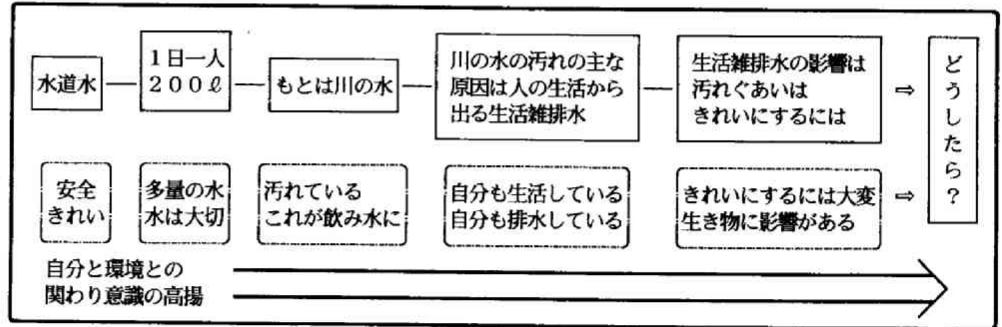 水道水
1日一人
200ℓ
もとは川の水
川の水の汚れの主な
原因は人の生活から
出る生活雑排水
生活雑排水の影響は
汚れぐあいは
きれいにするには
⇨
どうしたら？
安全
きれい
多量の水
水は大切
汚れている
これが飲み水に
自分も生活している
自分も排水している
きれいにするには大変
生き物に影響がある
⇨
自分と環境との
関わり意識の高揚